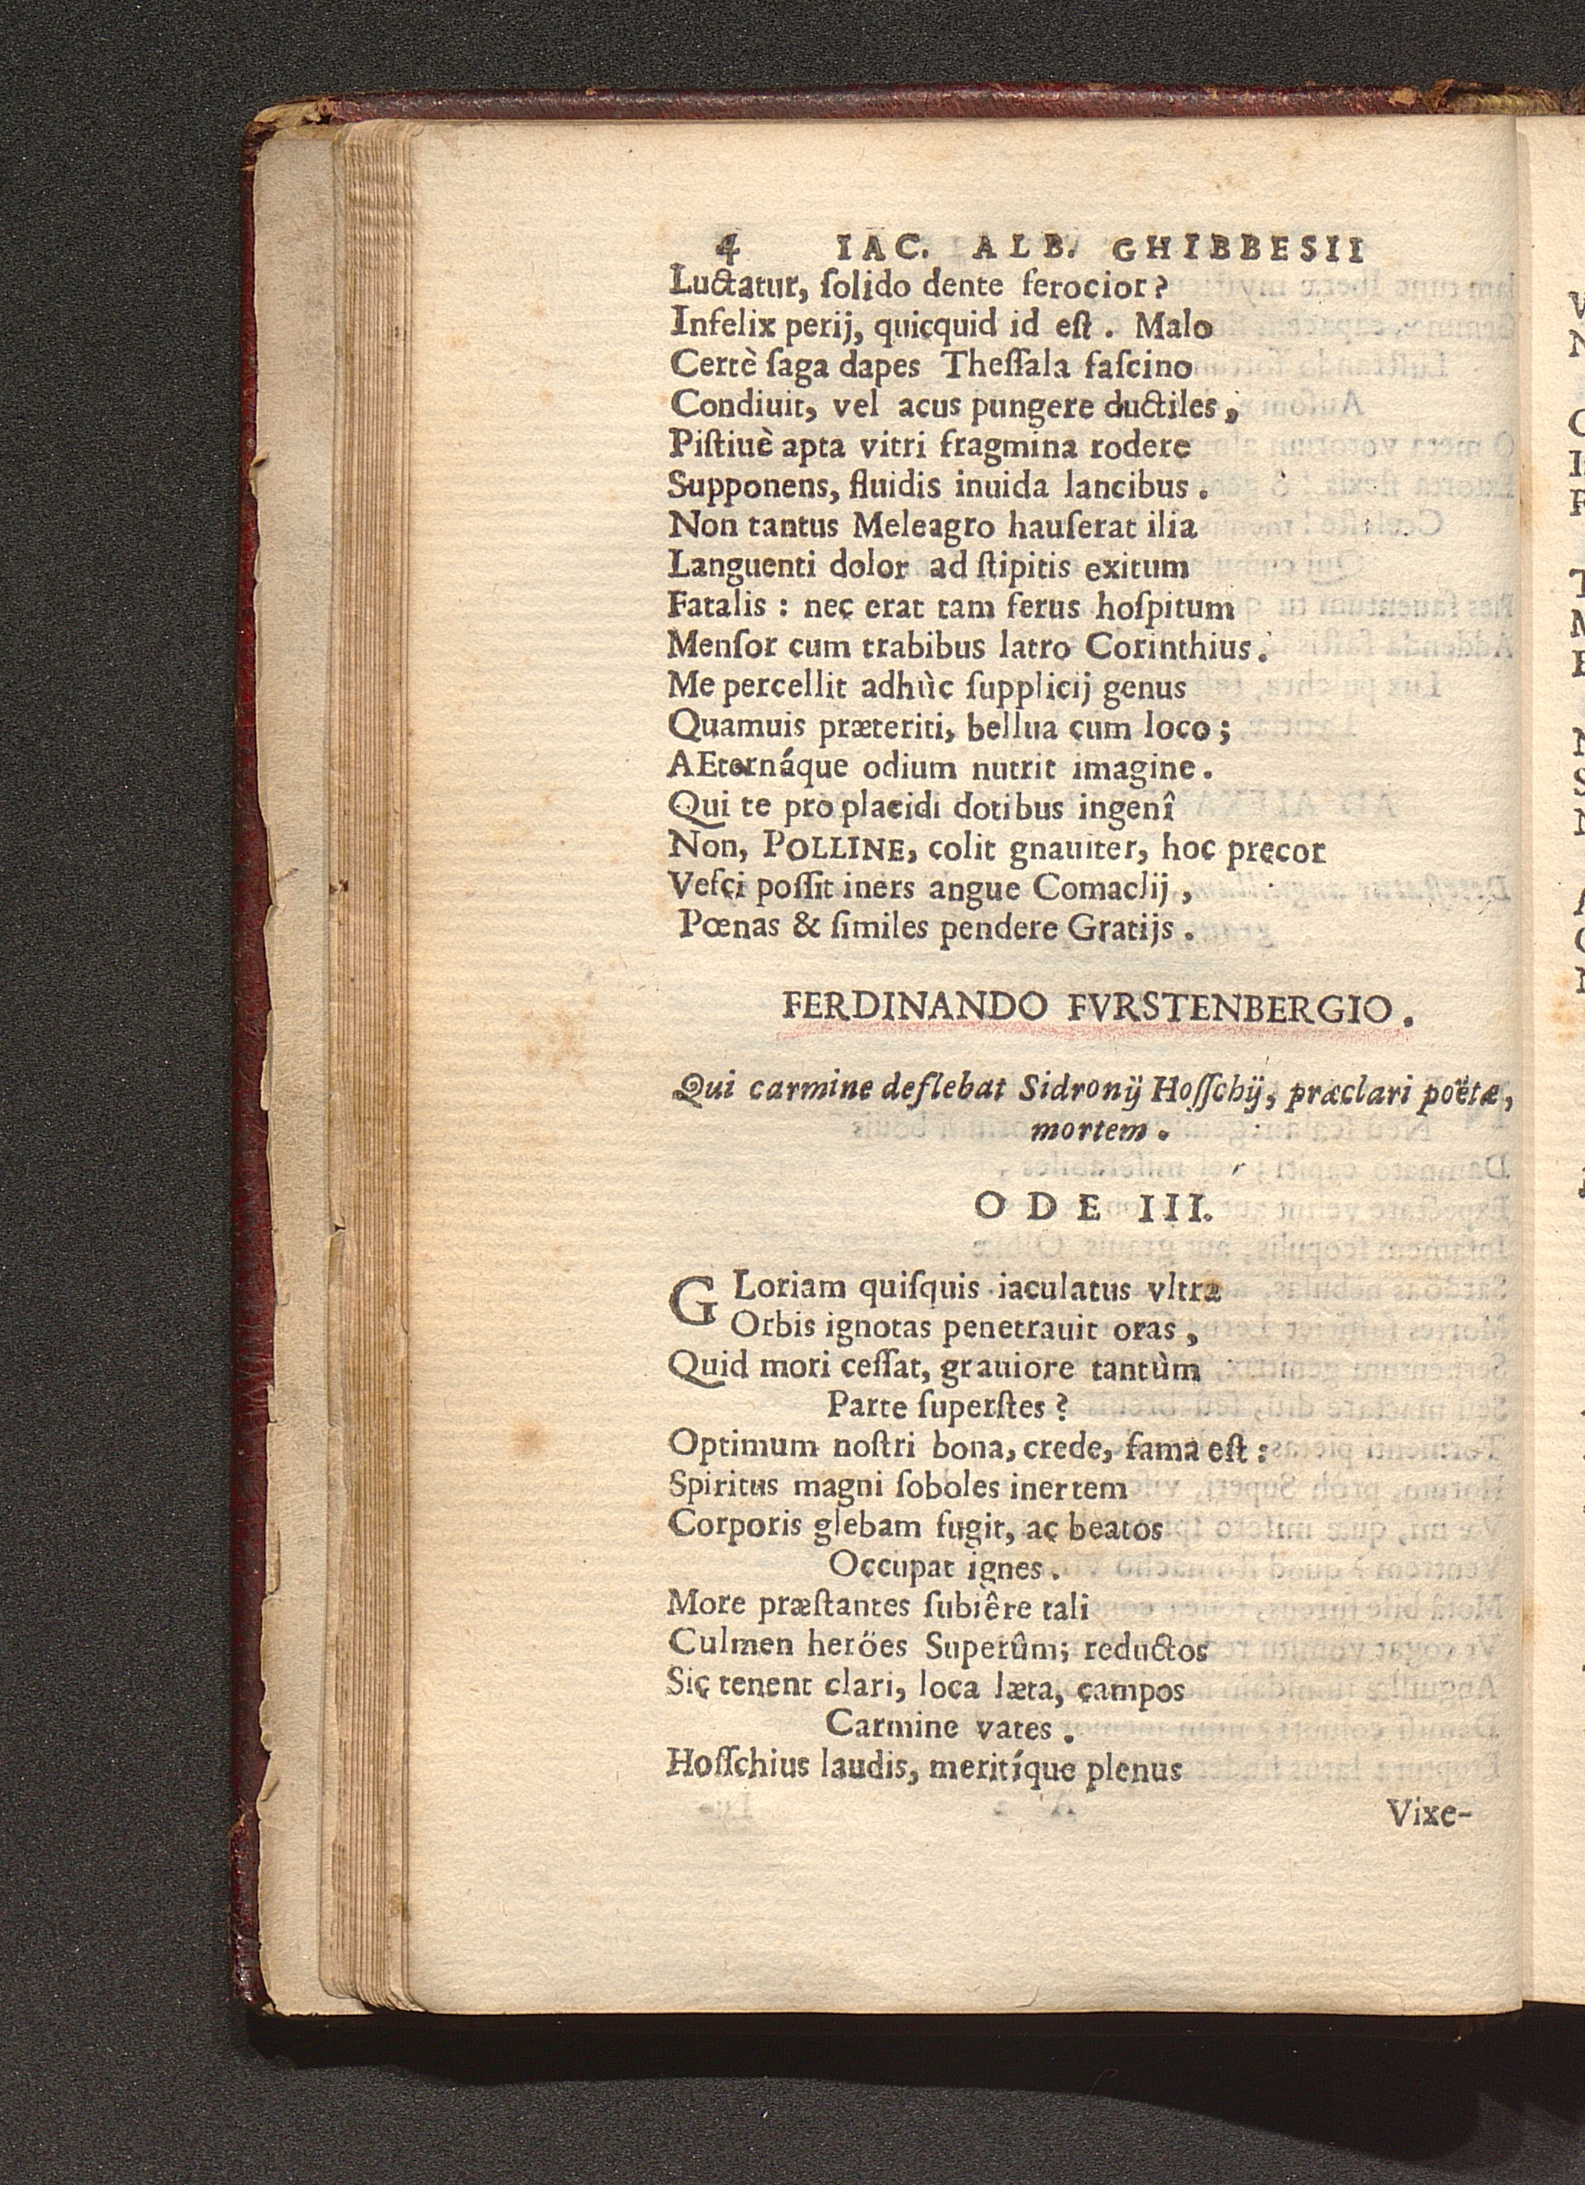 4 IAC. ALB. GHIBBESII
Luctatur, ſolido dente ferocior?
Infelix perij, quicquid id eſt. Malo
Certè ſaga dapes Theſſala faſcino
Condiuit, vel acus pungere ductiles,
Piſtiuè apta vitri fragmina rodere
Supponens, fluidis inuida lancibus.
Non tantus Meleagro hauſerat ilia
Languenti dolor ad ſtipitis exitum
Fatalis: nec erat tam ferus hoſpitum
Menſor cum trabibus latro Corinthius.
Me percellit adhùc ſupplicij genus
Quamuis præteriti, bellua cum loco;
AEternáque odium nutrit imagine.
Qui te pro placidi dotibus ingenî
Non, POLLINE, colit gnauiter, hoc precor
Veſci poſſit iners angue Comaclij,
Pœnas & ſimiles pendere Gratijs.
FERDINANDO FVRSTENBERGIO.
Qui carmine deflebat Sidronij Hoſſchij, præclari poëtæ,
mortem.
ODE III.
GLoriam quiſquis iaculatus vltra
Orbis ignotas penetrauit oras,
Quid mori ceſſat, grauiore tantùm
Parte ſuperſtes?
Optimum noſtri bona, crede, fama eſt:
Spiritus magni ſoboles inertem
Corporis glebam fugit, ac beatos
Occupat ignes.
More præſtantes ſubiêre tali
Culmen heröes Superûm; reductos
Sic tenent clari, loca læta, campos
Carmine vates.
Hoſſchius laudis, meritíque plenus
Vixe-